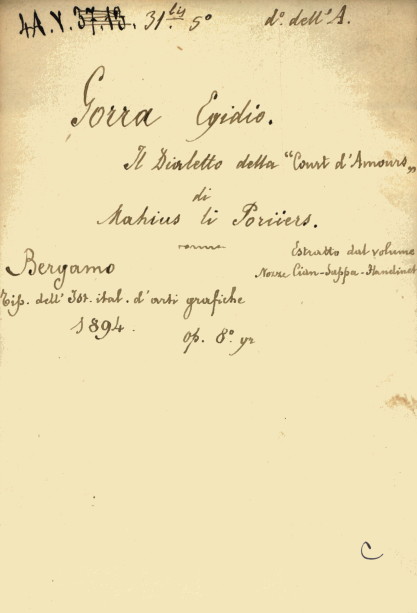 4A.Y. 37.13. 31.bis 5° d°. dell'A.
Gorra Egidio.
Il Dialetto della "Court d'Amours„
di
Mahius li Poriiers.
Estratto dal volume
Bergamo
Nozze Cian-Sappa-Flandinet
Tip. dell'Ist. ital. d'arti grafiche
1894.
op. 8°. gr
C